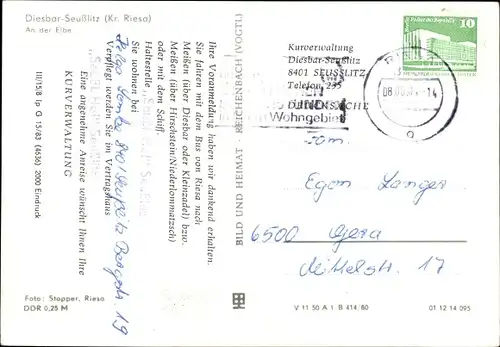 Diesbar-Seußlitz (Kr. Riesa)
An der Elbe
Ihre Voranmeldung haben wir dankend erhalten.
Sie fahren mit dem Bus von Riesa nach
Meißen (über Diesbar oder Kleinzadel) bzw.
Meißen (über Hirschstein/Niederlommatzsch)
oder mit dem Schiff.
Haltestelle
Sie wohnen bei
8401 Seußlitz Bergstr. 19
Verpflegt werden Sie im Vertragshaus
Eine angenehme Anreise wünscht Ihnen Ihre
KURVERWALTUNG
III/15/8 Ip G 15/83 (4636) 2000 Eindruck
Foto: Stapper, Riesa
DDR 0,25 M
BILD UND HEIMAT · REICHENBACH (VOGTL)
Kurverwaltung
Diesbar-Seußlitz
8401 SEUSSLITZ
Telefon 235
DRUCKSACHE
UND
Wohngebiet
10
Fam.
Egon Langer
6500 Gera
Mittelstr. 17
V 11 50 A 1 B 414/80
01 12 14 095